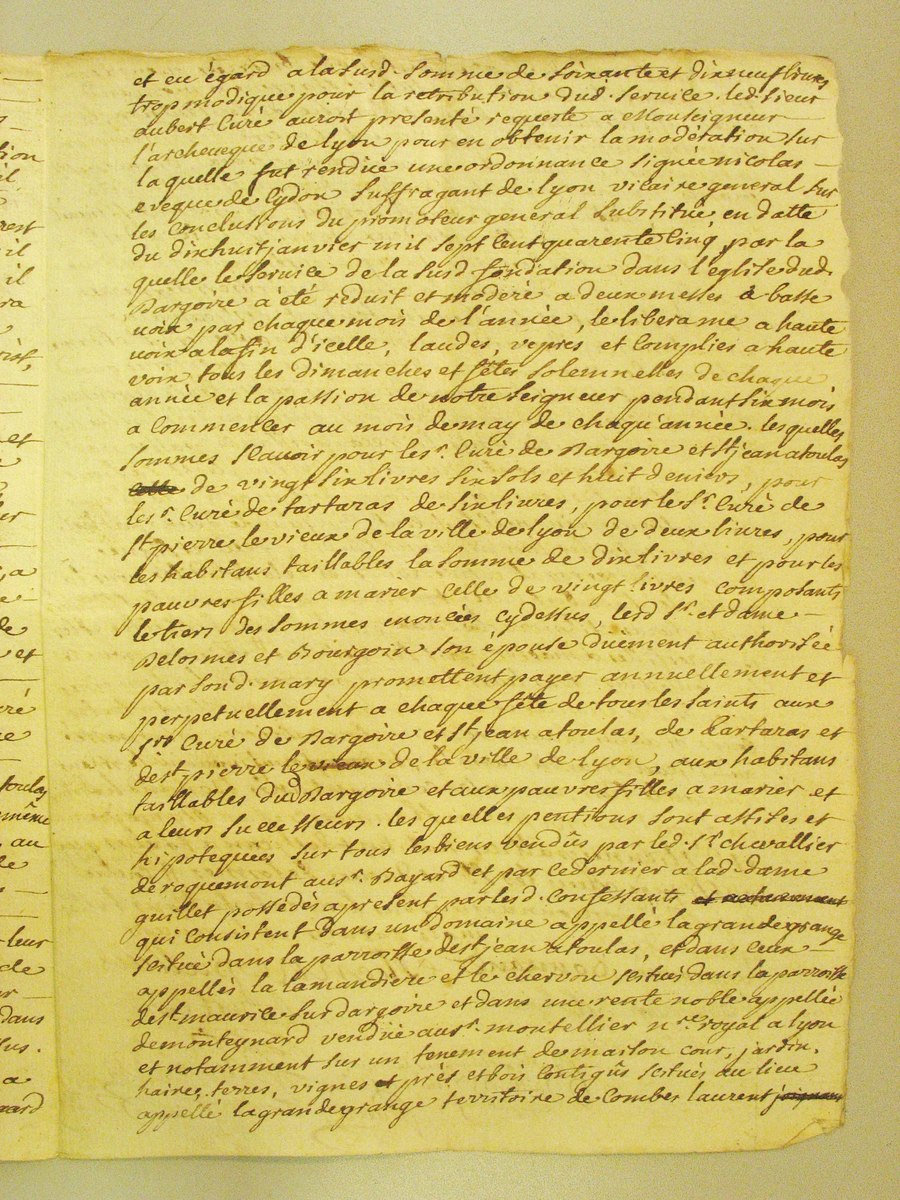 et eu égard a la susd. somme de soixante et dix neuf livres
trop modique pour la retribution dud. service. led. sieur
aubert Curé auroit presenté requeste a Monseigneur
l'archeveque de lyon pour en obtenir la modération sur
la quelle fut rendue une ordonnance signée nicolas
eveque de Cydon suffragant de lyon vicaire general sur
les Conclusions du promoteur general substitué en datte
du dixhuit janvier mil sept cent quarente Cinq, par la
quelle le service de la susd. fondation dans l'église dud.
Dargoire à été réduit et modéré a deux messes à basse
voix par chaque mois de l'année, le libera me a haute
voix a la fin d'icelle, laudes, vepres et Complies a haute
voix tous les dimanches et fêtes solemnelles de chaque
année et la passion de notre seigneur pendant six mois
a Commencer au mois de may de chaqu'année. lesquelles
sommes scavoir pour les sr. Curé de Dargoire et St jean atoulas
celle de vingt six livres six sols et huit deniers, pour
le sr. Curé de tartaras de six livres, pour le Sr. Curé de
St pierre le vieux de la ville de lyon de deux livres, pour
les habitans taillables la somme de dix livres et pour les
pauvres filles a marier celle de vingt livres composants
le tiers des sommes enoncées cydessus, lesd. Sr. et dame
Delosmes et Bourgoin son épouse duement authorisée
par sond. mary promettent payer annuellement et
perpetuellement a chaque fête de tous les saints aux
srs Curé de Dargoire et St jean atoulas, de tartaras et
de st pierre le vieux de la ville de lyon, aux habitans
taillables dud Dargoire et aux pauvres filles a marier et
a leurs successeurs. les quelles pentions sont assises et
hipotequées sur tous les biens vendûs par led. Sr. chevallier
de roquemont au sr. Bayard et par ce dernier a lad. dame
guillet possedés apresent par lesd. Confessants et notamment
qui consistent dans un domaine appellé la grande grange
scitué dans la parroisse de st jean atoulas, et dans ceux
appellés la lamandiere et le chervon scitués dans la parroisse
de st maurice sur dargoire et dans une rente noble appellée
de monteynard vendue au sr. montellier nre royal a lyon
et notamment sur un tenement de maison cour, jardin,
haires, terres, vignes et prés et bois Contigûs scitués au lieu
appellé la grande grange tevistoire de Combes laurent joignant